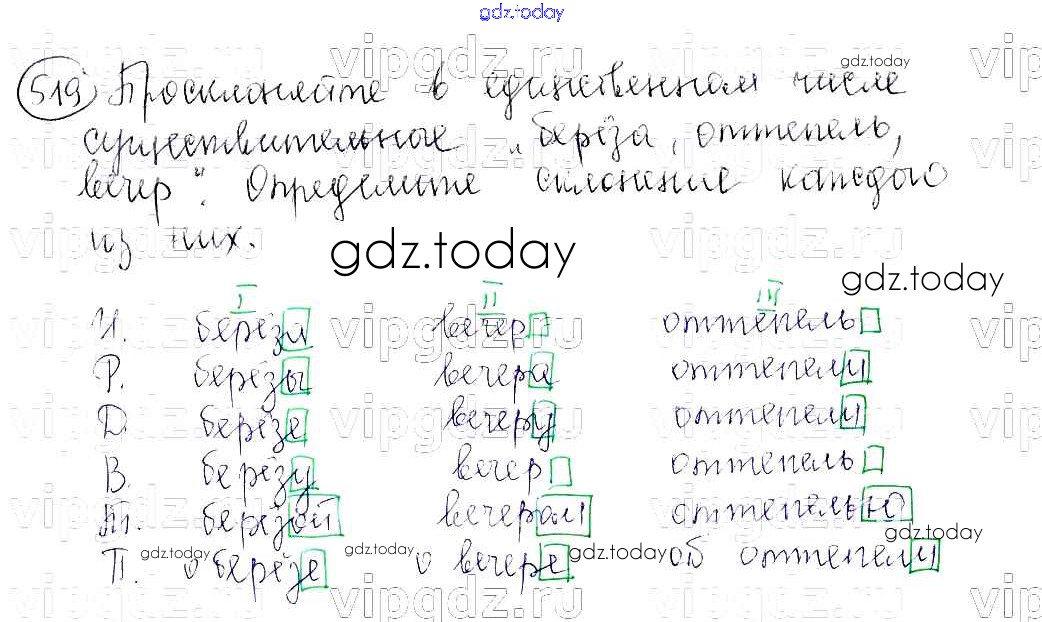 gdz.today
519 Просклоняйте в единственном числе
существительное „берёза, оттепель,
вечер". Определите склонение каждого
из них.
gdz.today
I II III
И. берёза вечер оттепель
Р. берёзы вечера оттепели
Д. берёзе вечеру оттепели
В. берёзу вечер оттепель
Т. берёзой вечером оттепелью
П. о берёзе о вечере об оттепели